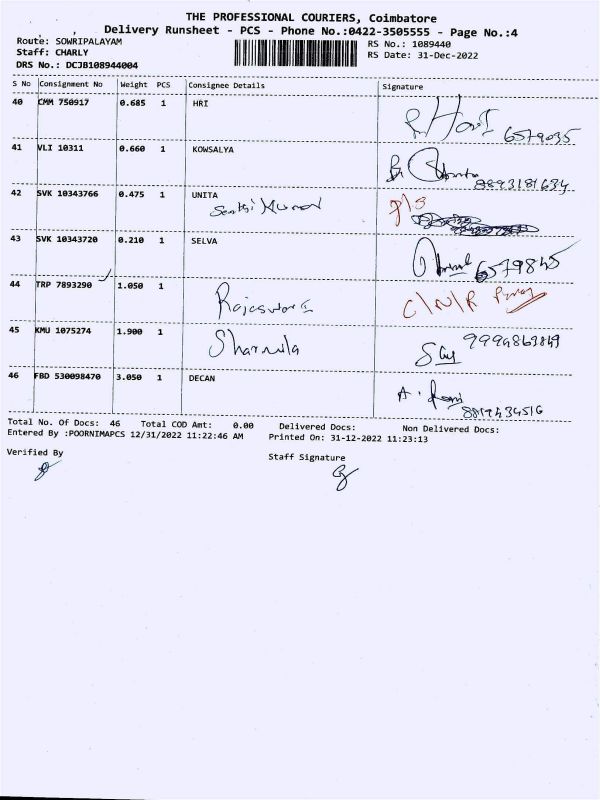 THE PROFESSIONAL COURIERS, Coimbatore
Delivery Runsheet - PCS - Phone No.:0422-3505555 - Page No.:4
Route: SOWRIPALAYAM
Staff: CHARLY
DRS No.: DCJB108944004
RS No.: 1089440
RS Date: 31-Dec-2022
S No Consignment No Weight PCS Consignee Details Signature
40 CMM 750917 0.685 1 HRI
6579035
41 VLI 10311 0.660 1 KOWSALYA
8893181634
42 SVK 10343766 0.475 1 UNITA
Senthil Kumar
43 SVK 10343720 0.210 1 SELVA
6579845
44 TRP 7893290 1.050 1 Rajeswari C/N/R
45 KMU 1075274 1.900 1 Sharmila
46 FBD 530098470 3.050 1 DECAN
Total No. Of Docs: 46 Total COD Amt: 0.00 Delivered Docs: Non Delivered Docs:
Entered By :POORNIMAPCS 12/31/2022 11:22:46 AM Printed On: 31-12-2022 11:23:13
Verified By
Staff Signature